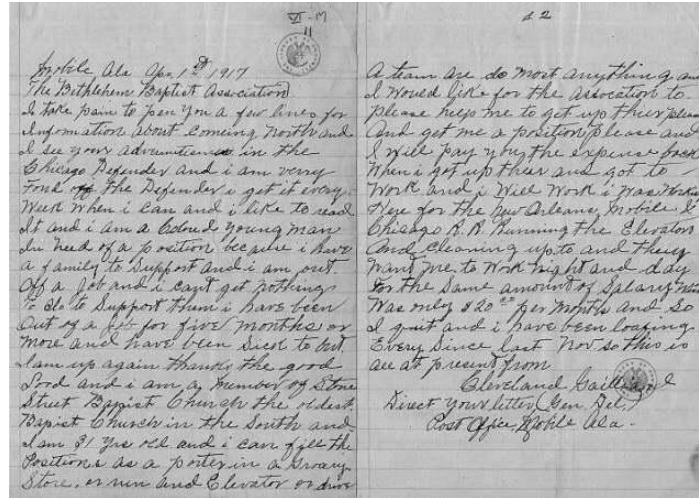 VI-M
11
Mobile Ala Apr 1st 1917
The Bethlehem Baptist Association
I take pain to pen you a few lines for
Information about coming North and
I see your in the
Chicago Defender and i am verry
Fond off the Defender i get it every
Week when i can and i like to read
It and i am a Colored young man
In need of a position because i have
a family to Support and i am out
off a Job and i cant get nothing
To do to Support them i have been
Out of a Job for five months or
More and have been Sick to but
I am up again thanks the good
Lord and i am a member of Stone
Street Bapist Church the oldest
Bapist Church in the South and
I am 31 yrs old and i can fill the
Positions as a porter in a Grocery
Store, or run and Elevator or drive
2
A team are do most anything and
I Would like for the assocation to
Please helps me to get up thier please
And get me a position please and
I Will pay you the expense back
When i got up thier and got to
Work and i Will Work i Was
Here for the New Orleans, Mobile &
Chicago R. R. Running the Elevator
And Cleaning up to and they
Want me to Work night and day
For the Same amount of Salary
Was only $20.00 per Month and So
I quit and i have been loafing
Every Since last Nov so this is
all at present from
Cleveland Gailliard
Direct Your letter (Gen. Del.)
Post Office, Mobile Ala.